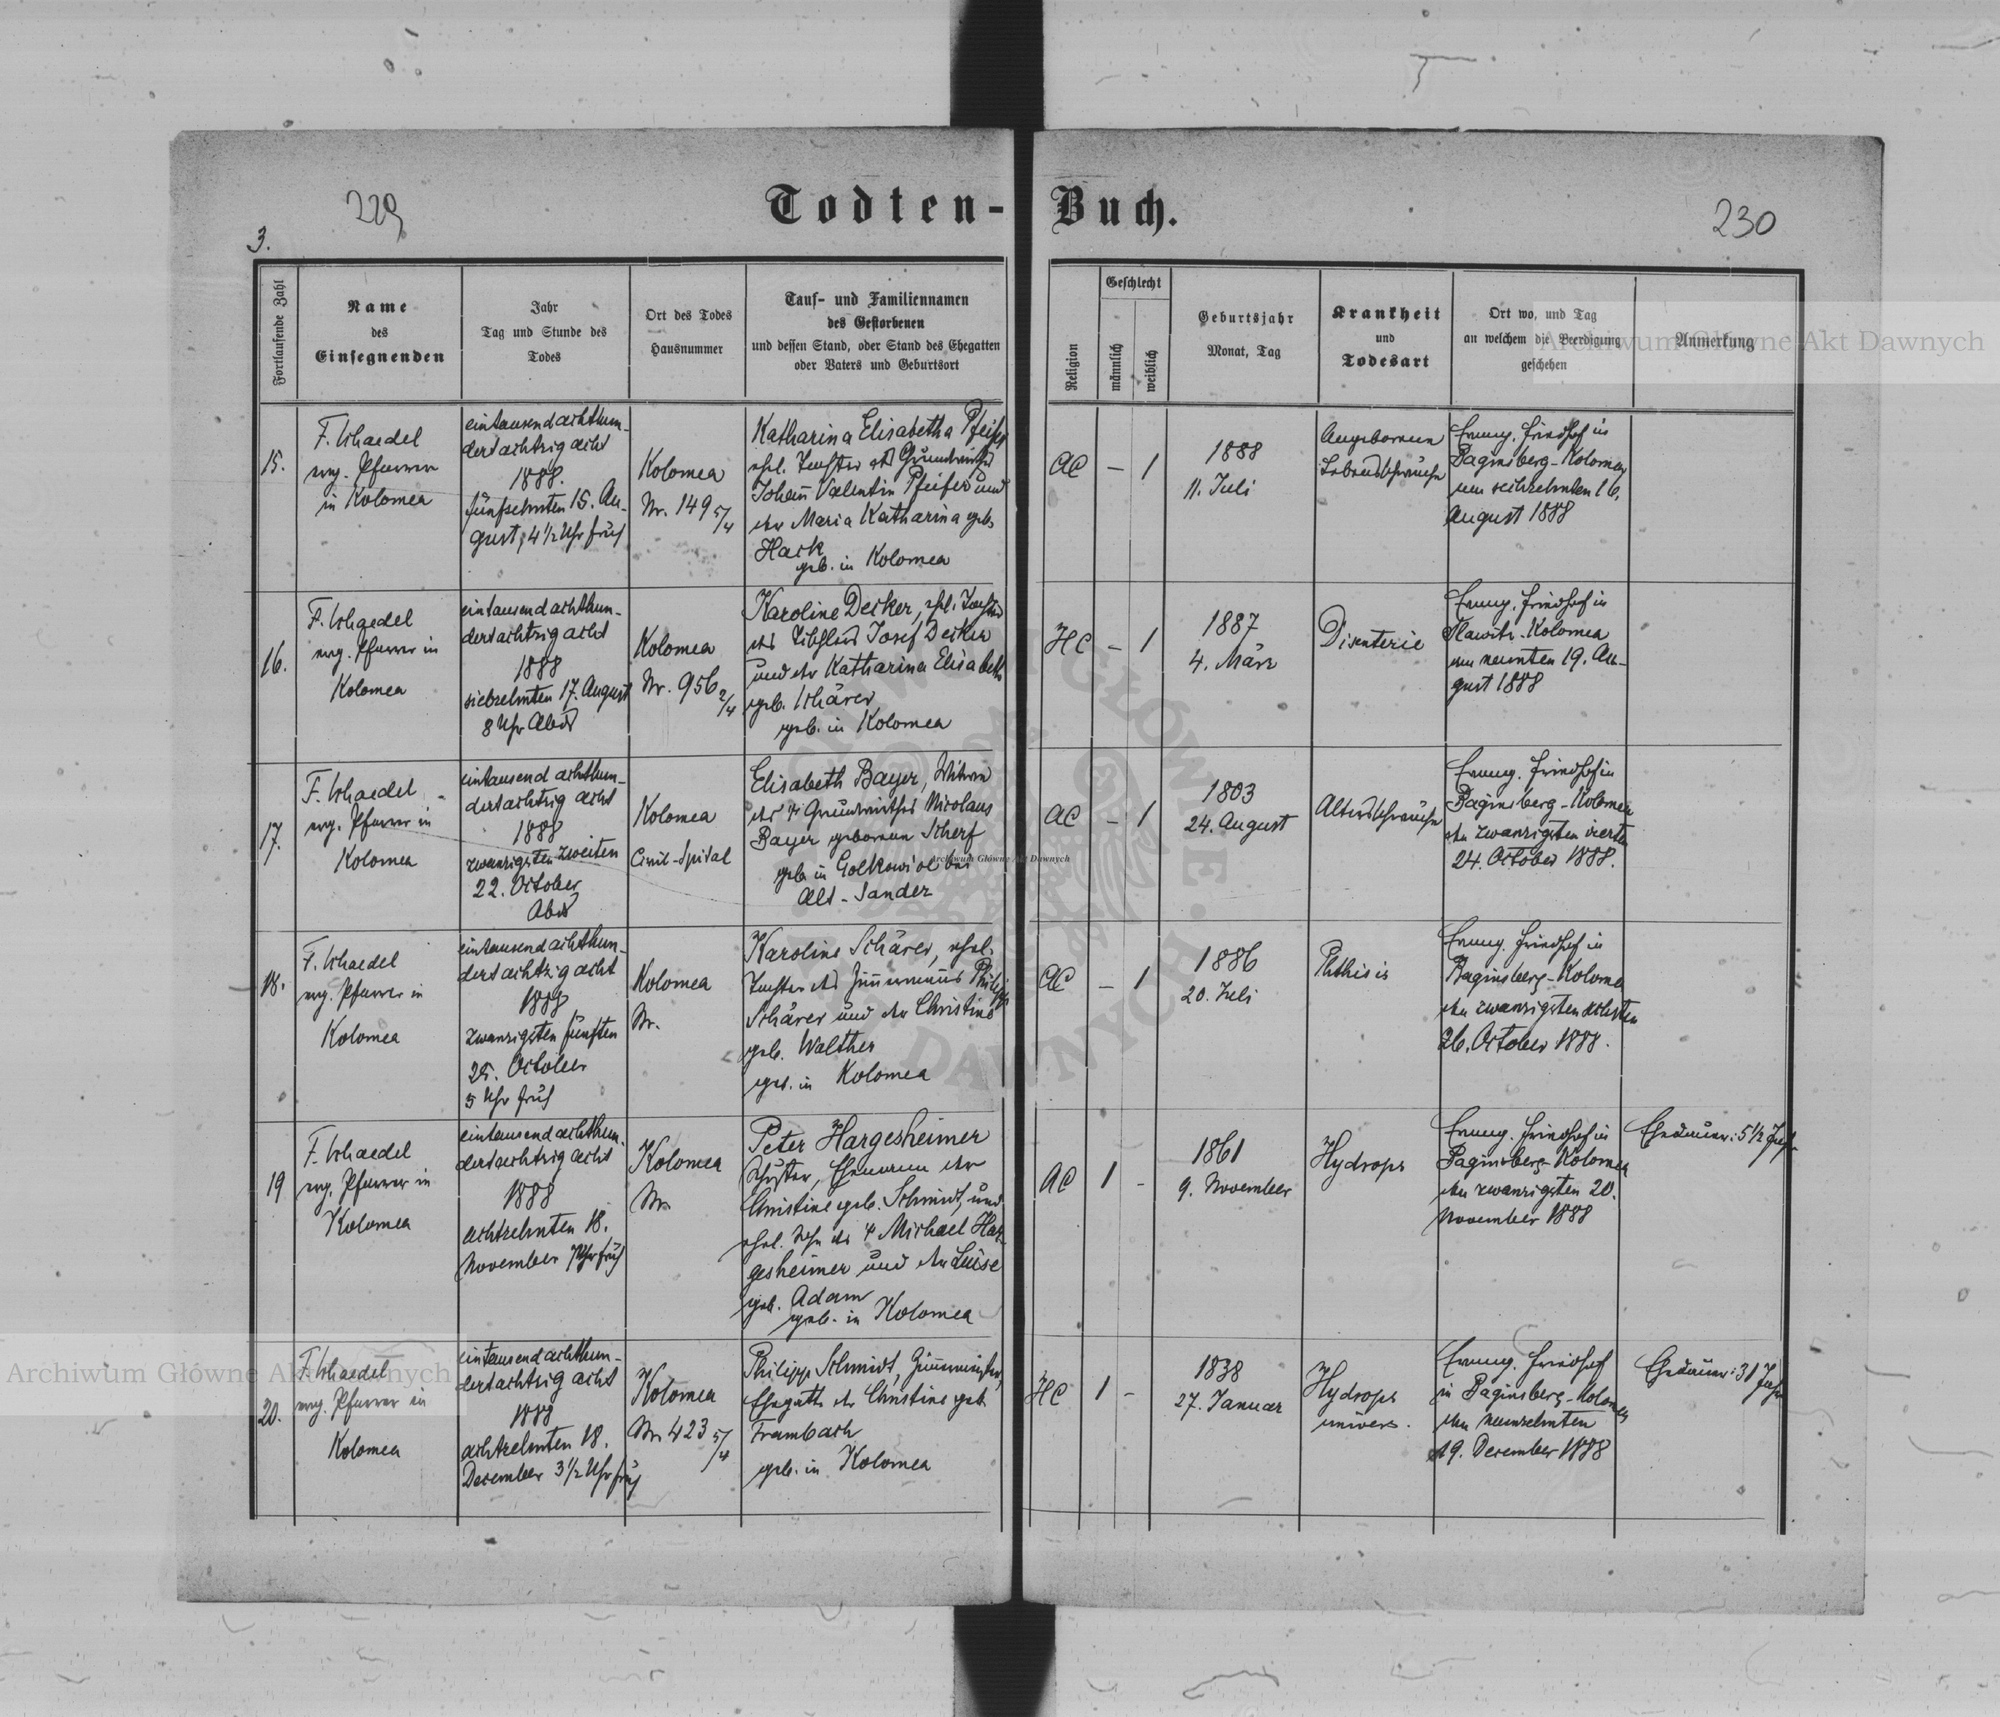 229
Todten-Buch.
230
3.
Fortlaufende Zahl
Name
des
Einsegnenden
Jahr
Tag und Stunde des
Todes
Ort des Todes
Hausnummer
Tauf- und Familiennamen
des Gestorbenen
und dessen Stand, oder Stand des Ehegatten
oder Vaters und Geburtsort
Religion
Geschlecht
männlich
weiblich
Geburtsjahr
Monat, Tag
Krankheit
und
Todesart
Ort wo, und Tag
an welchem die Beerdigung
geschehen
Anmerkung
15.
F. Schaedel
evg. Pfarrer
in Kolomea
eintausendachthun-
dertachtzigacht
1888.
fünfzehnten 15. Au-
gust, 4½ Uhr früh
Kolomea
Nr. 149 5/4
Katharina Elisabetha Pfeifer
ehel. Tochter des Grundwirthes
Johann Valentin Pfeifer und
der Maria Katharina geb.
Hack
geb. in Kolomea
AC
—
1
1888
11. Juli
Angeborene
Lebensschwäche
Evang. Friedhof in
Baginsberg-Kolomea
am sechzehnten 16.
August 1888
16.
F. Schaedel
evg. Pfarrer in
Kolomea
eintausendachthun-
dertachtzigacht
1888
siebzehnten 17. August
8 Uhr Abds
Kolomea
Nr. 956 2/4
Karoline Decker, ehl. Tochter
des Josef Decker
und der Katharina Elisabeth
geb. Schärer
geb. in Kolomea
HC
—
1
1887
4. März
Disenterie
Evang. Friedhof in
Slawitz-Kolomea
am neunten 19. Au-
gust 1888
17.
F. Schaedel
evg. Pfarrer in
Kolomea
eintausend achthun-
dertachtzig acht
1888
zwanzigsten zweiten
22. October
Abds
Kolomea
Civil-Spital
Elisabeth Bayer, Witwe
des † Grundwirthes Nicolaus
Bayer geborene Scherf
geb. in Golkowice bei
Alt-Sandez
AC
—
1
1803
24. August
Altersschwäche
Evang. Friedhof in
Baginsberg-Kolomea
den zwanzigsten vierten
24. October 1888.
18.
F. Schaedel
evg. Pfarrer in
Kolomea
eintausendachthun-
dertachtzigacht
1888
zwanzigsten fünften
25. October
5 Uhr früh
Kolomea
Nr.
Karoline Schärer, ehel.
Tochter des Zimmermanns Philipp
Schärer und der Christine
geb. Walther
geb. in Kolomea
AC
—
1
1886
20. Juli
Phthisis
Evang. Friedhof in
Baginsberg-Kolomea
den zwanzigsten sechsten
26. October 1888.
19
F. Schaedel
evg. Pfarrer in
Kolomea
eintausendachthun-
dertachtzigacht
1888
achtzehnten 18.
November 7 Uhr früh
Kolomea
Nr.
Peter Hargesheimer
Schuster, Ehemann der
Christine geb. Schmidt, und
ehel. Sohn des † Michael Har-
gesheimer und der Luise
geb. Adam
geb. in Kolomea
AC
1
-
1861
9. November
Hydrops
Evang. Friedhof in
Baginsberg-Kolomea
den zwanzigsten 20.
November 1888
Ehedauer: 5½ Jahr
20.
F. Schaedel
evg. Pfarrer in
Kolomea
eintausendachthun-
dertachtzig acht
1888
achtzehnten 18.
December 3½ Uhr früh
Kolomea
Nr. 423 5/4
Philipp Schmidt, Zimmermeister,
Ehegatte der Christine geb.
Trambach
geb. in Kolomea
HC
1
-
1838
27. Januar
Hydrops
univers.
Evang. Friedhof
in Baginsberg-Kolomea
den neunzehnten
19. December 1888
Ehedauer: 31 Jahr
Archiwum Główne Akt Dawnych
Archiwum Główne Akt Dawnych
Archiwum Główne Akt Dawnych